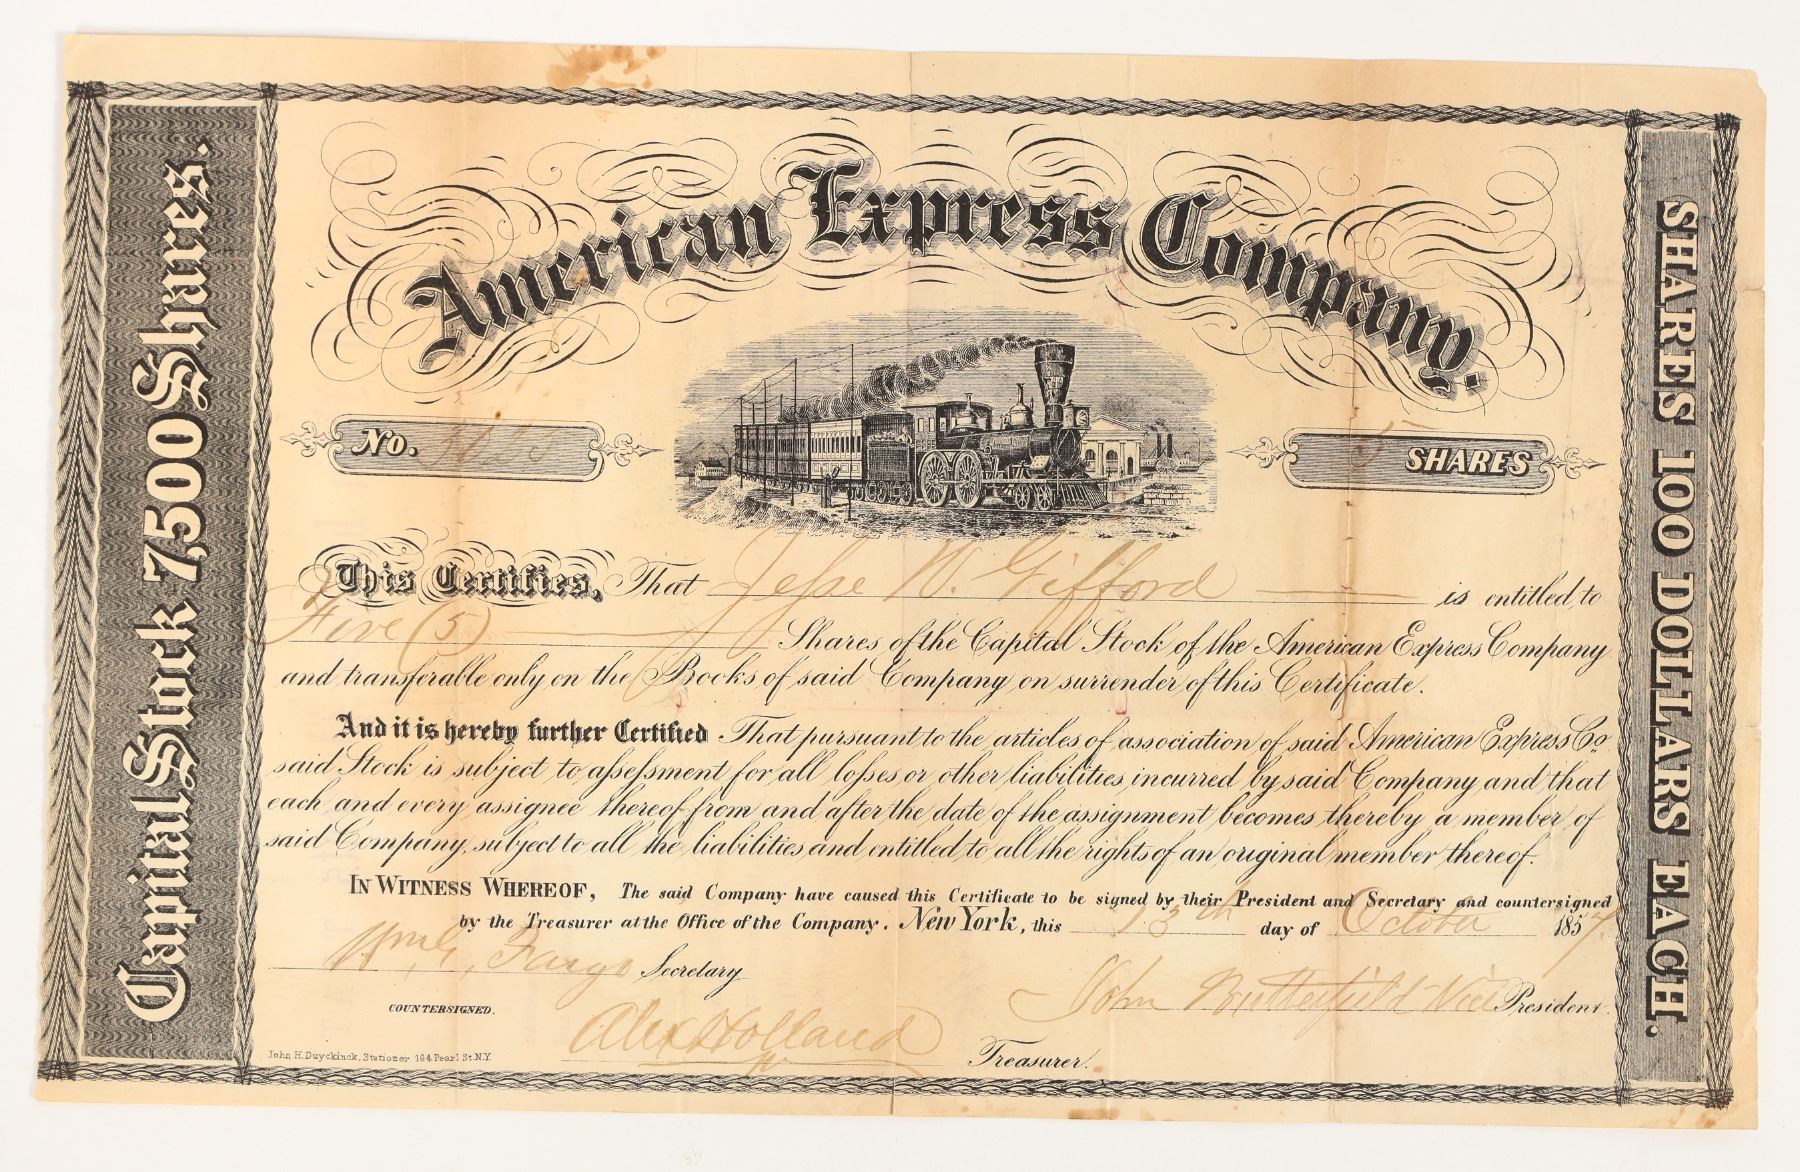 American Express Company.
Capital Stock 7,500 Shares.
SHARES 100 DOLLARS EACH.
No.
5 SHARES
This Certifies, That Jesse W. Gifford is entitled to
Five (5) Shares of the Capital Stock of the American Express Company
and transferable only on the Books of said Company on surrender of this Certificate.
And it is hereby further Certified That pursuant to the articles of association of said American Express Co.
said Stock is subject to assessment for all losses or other liabilities incurred by said Company and that
each and every assignee thereof from and after the date of the assignment becomes thereby a member of
said Company, subject to all the liabilities and entitled to all the rights of an original member thereof.
IN WITNESS WHEREOF, The said Company have caused this Certificate to be signed by their President and Secretary and countersigned
by the Treasurer at the Office of the Company. New York, this 13th day of October 1857.
Wm. G. Fargo Secretary
John Butterfield Vice President.
COUNTERSIGNED.
Alex Holland Treasurer.
John H. Duyckinck, Stationer 164 Pearl St. N.Y.